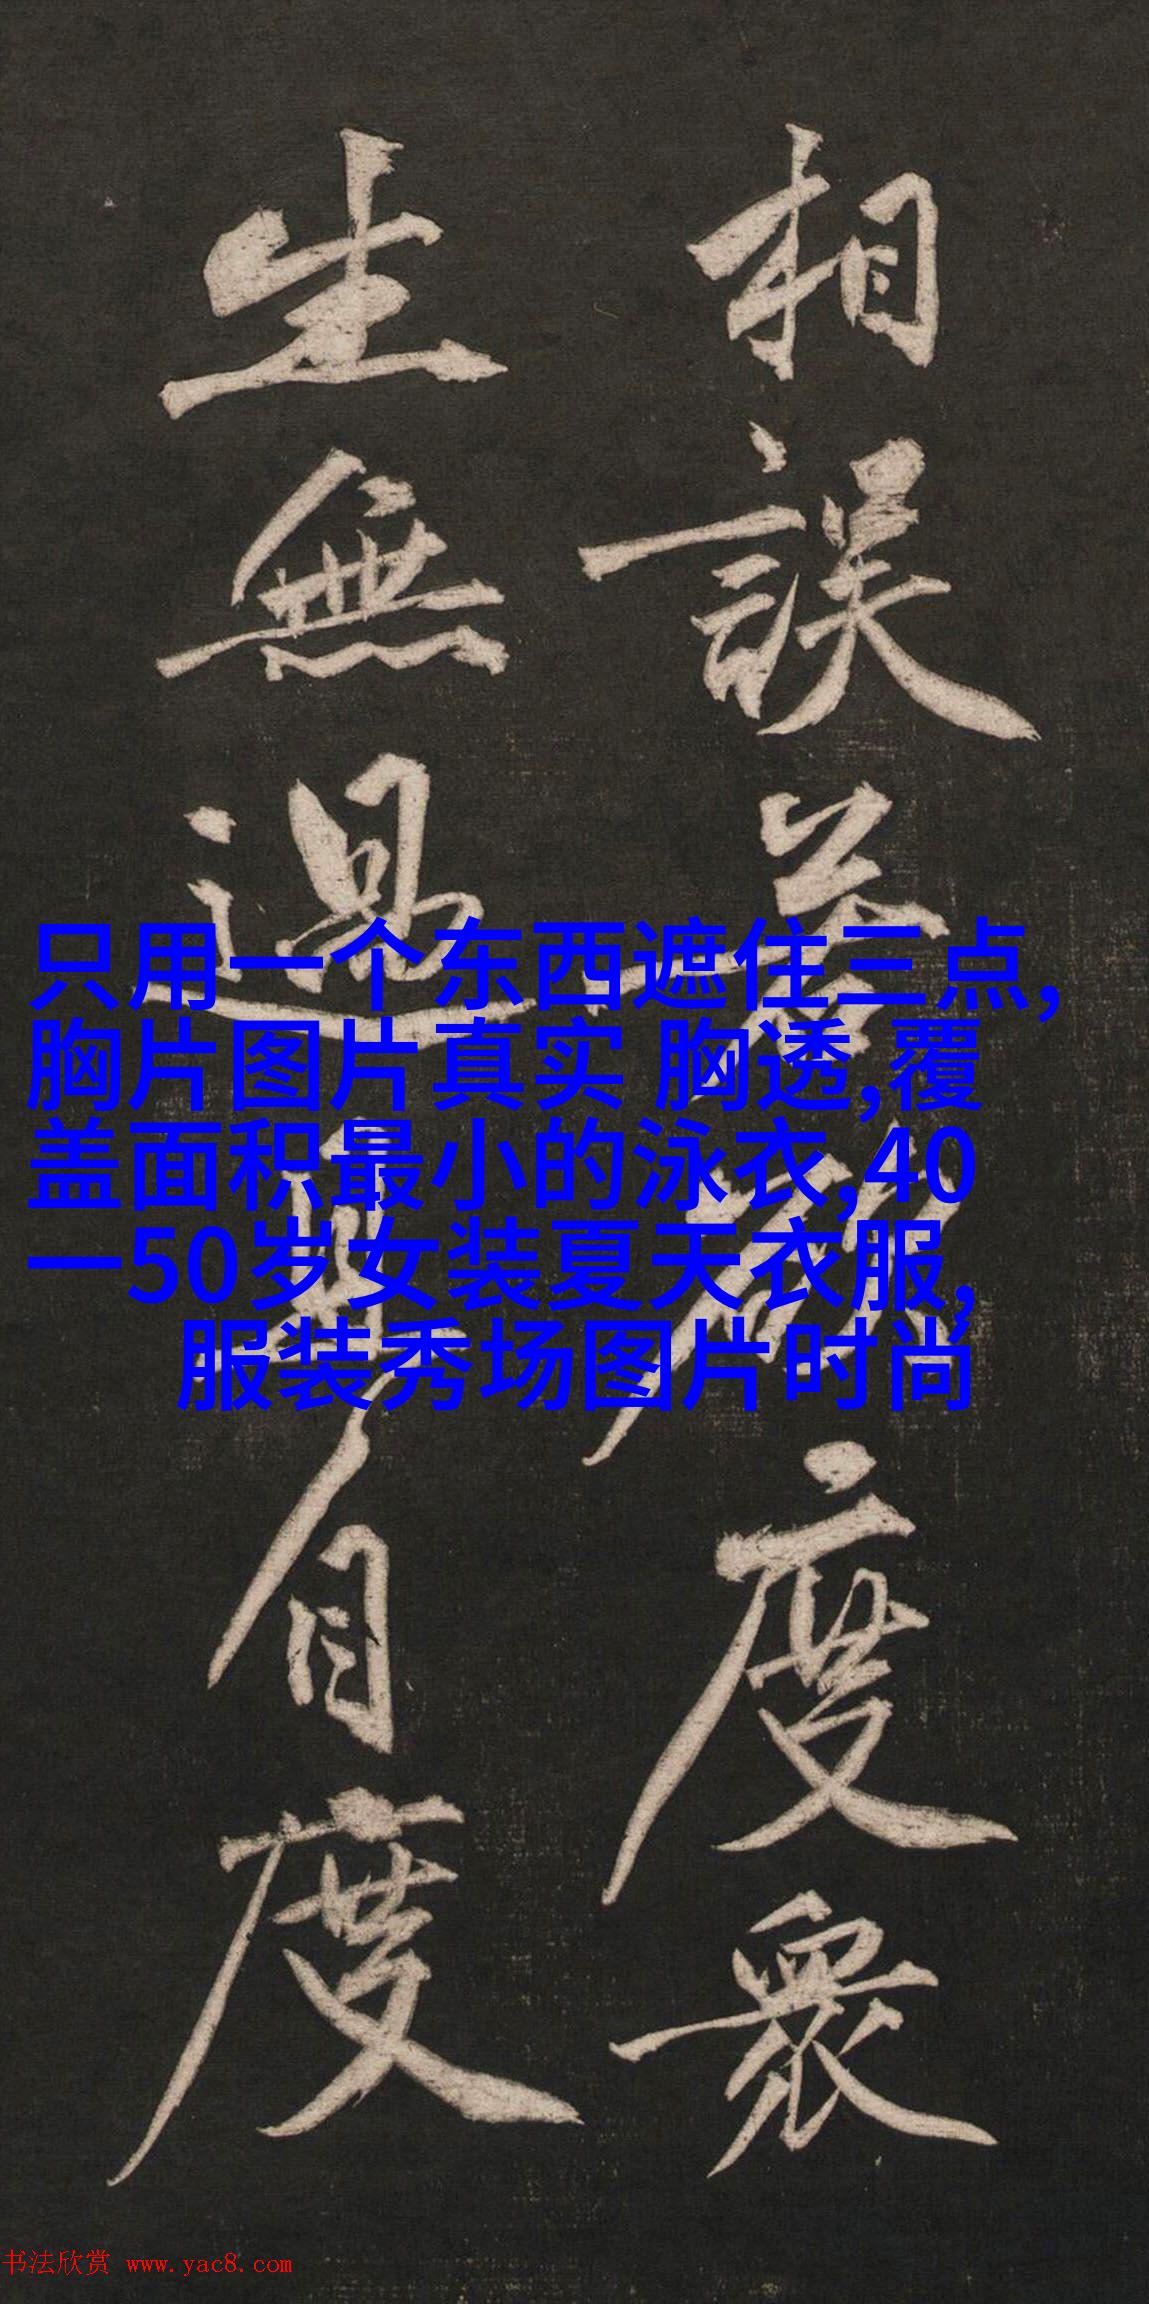 相誤若欲度衆
生無過且自度
只用一个东西遮住三点,
胸片图片真实 胸透,覆
盖面积最小的泳衣,40
一50岁女装夏天衣服,
服装秀场图片时尚
书法欣赏 www.yac8.com